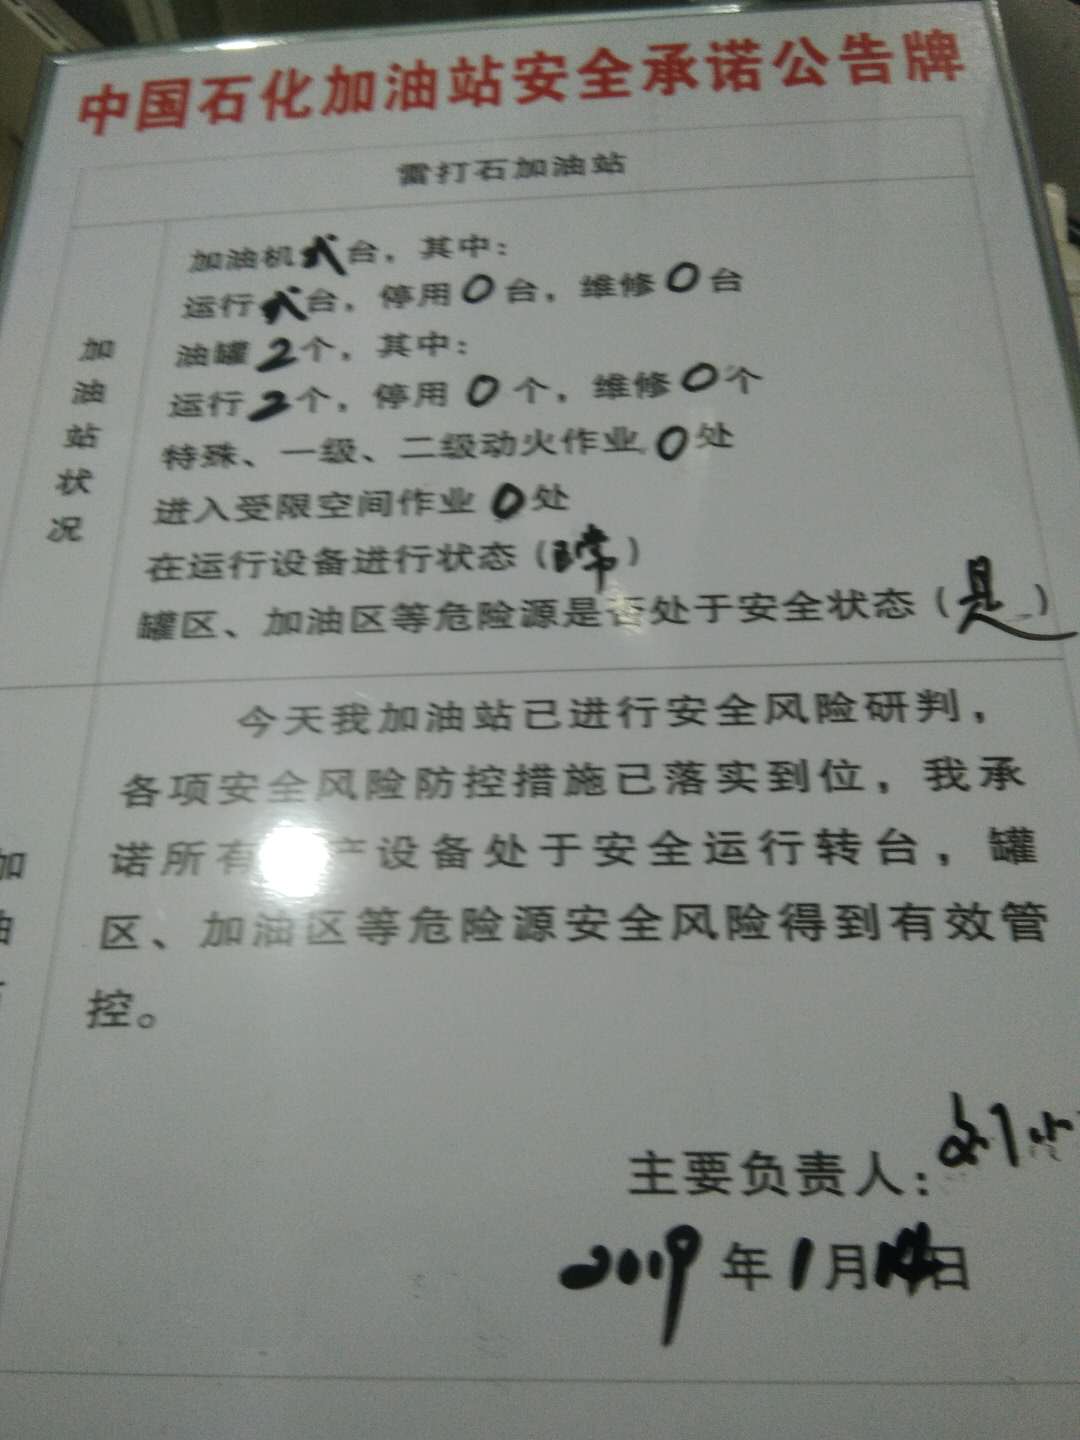 中国石化加油站安全承诺公告牌
雷打石加油站
加油站状况
加油机 台，其中：
运行 台，停用0台，维修0台
油罐2个，其中：
运行2个，停用0个，维修0个
特殊、一级、二级动火作业0处
进入受限空间作业0处
在运行设备进行状态（正常）
罐区、加油区等危险源是否处于安全状态（是）
加油
今天我加油站已进行安全风险研判，
各项安全风险防控措施已落实到位，我承
诺所有 产设备处于安全运行转台，罐
区、加油区等危险源安全风险得到有效管
控。
主要负责人：刘小
2019年1月14日